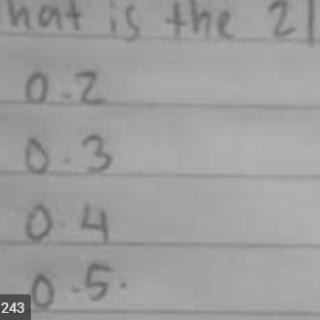 hat is the 2
0.2
0.3
0.4
0.5.
243